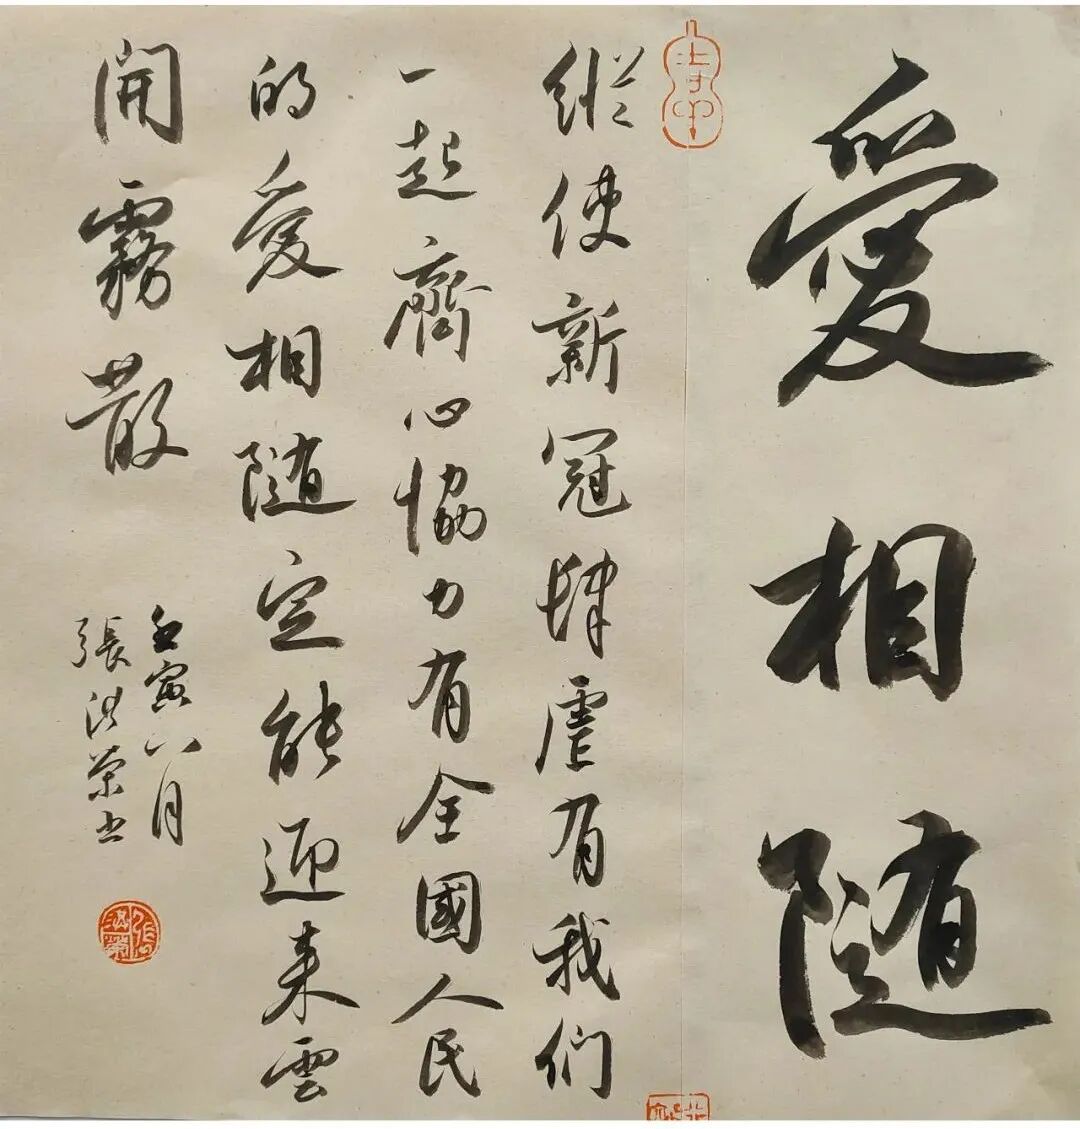 愛相随
縱使新冠肆虐有我們
一起齊心協力有全國人民
的愛相随定能迎来雲
開霧散
壬寅八月
張洪榮書